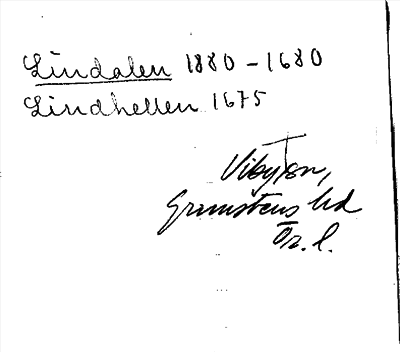 Lindalen 1880-1680
Lindhellen 1675
Viby sn,
Grimstens hd
Ör. l.